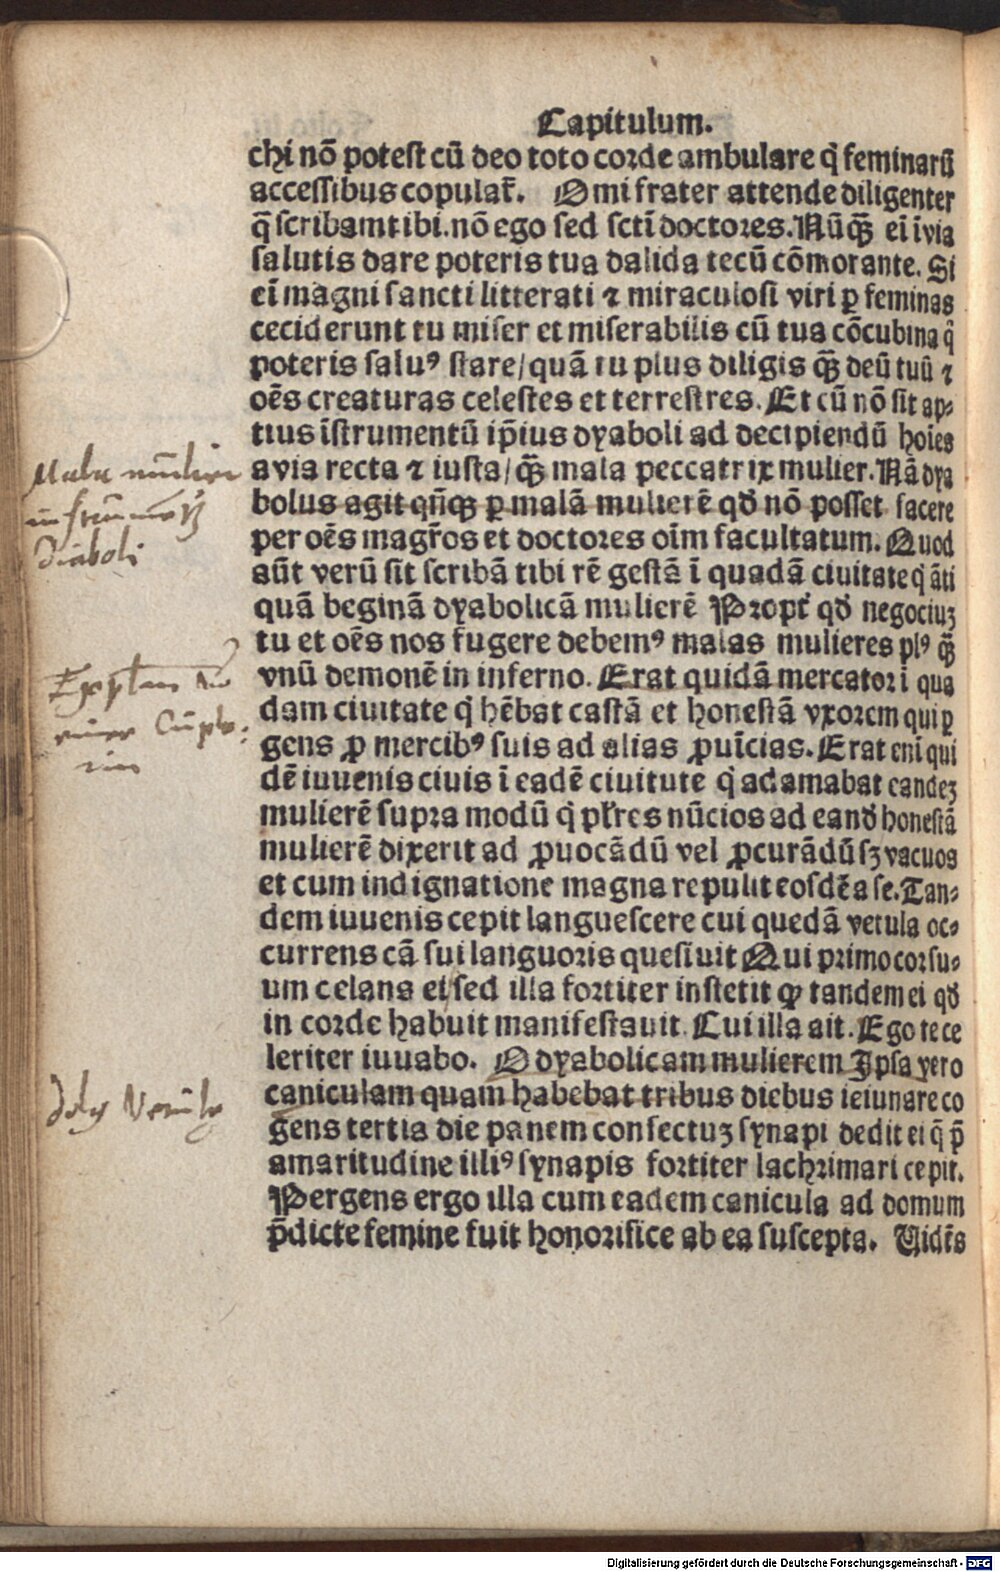 Capitulum.
chi nō potest cū deo toto corde ambulare q̇ feminarū
accessibus copulat̄. O mi frater attende diligenter
q̄ scribam tibi. nō ego sed sct̄i doctores. Nūq̄ꝫ ei ī via
salutis dare poteris tua dalida tecū cōmorante. Si
ei magni sancti litterati ⁊ miraculosi viri ꝑ feminas
ceciderunt tu miser et miserabilis cū tua cōcubina q̊
poteris saluꝰ stare/ quā tu plus diligis q̄ꝫ deū tuū ⁊
oēs creaturas celestes et terrestres. Et cū nō sit ap⸗
tius īstrumentū ip̄ius dyaboli ad decipiendū hoīes
a via recta ⁊ iusta/ q̄ꝫ mala peccatrix mulier. Nā dya
bolus agit qn̄qꝫ ꝑ malā mulierē qd̄ nō posset facere
per oēs magr̄os et doctores oīm facultatum. Quod
aūt verū sit scribā tibi rē gestā ī quadā ciuitate q̇ āti
quā beginā dyabolicā mulierē Propt̄ qd̄ negociuꝫ
tu et oēs nos fugere debemꝰ malas mulieres plꝰ q̄ꝫ
vnū demonē in inferno. Erat quidā mercator ī qua
dam ciuitate q̇ hēbat castā et honestā vxorem qui ꝑ
gens ꝓ mercibꝰ suis ad alias ꝓuīcias. Erat enī qui
dē iuuenis ciuis ī eadē ciuitute q̇ adamabat eandeꝫ
mulierē supra modū q̇ pl̄res nūcios ad eand̄ honestā
mulierē dixerit ad ꝓuocādū vel ꝓcurādū sꝫ vacuos
et cum indignatione magna repulit eosdē a se. Tan⸗
dem iuuenis cepit languescere cui quedā vetula oc⸗
currens cā sui languoris quesiuit Qui primo cor su⸗
um celans ei sed illa fortiter institit ꝙ tandem ei qd̄
in corde habuit manifestauit. Cui illa ait. Ego te ce
leriter iuuabo. O dyabolicam mulierem Ipsa vero
caniculam quam habebat tribus diebus ieiunare co
gens tertia die panem confectuꝫ synapi dedit ei q̄ p̄
amaritudine illiꝰ synapis fortiter lachrimari cepit.
Pergens ergo illa cum eadem canicula ad domum
p̄dicte femine fuit honorifice ab ea suscepta. Uidēs
Mala mulier
instrumētū
diaboli
doly Vetule
Digitalisierung gefördert durch die Deutsche Forschungsgemeinschaft - DFG